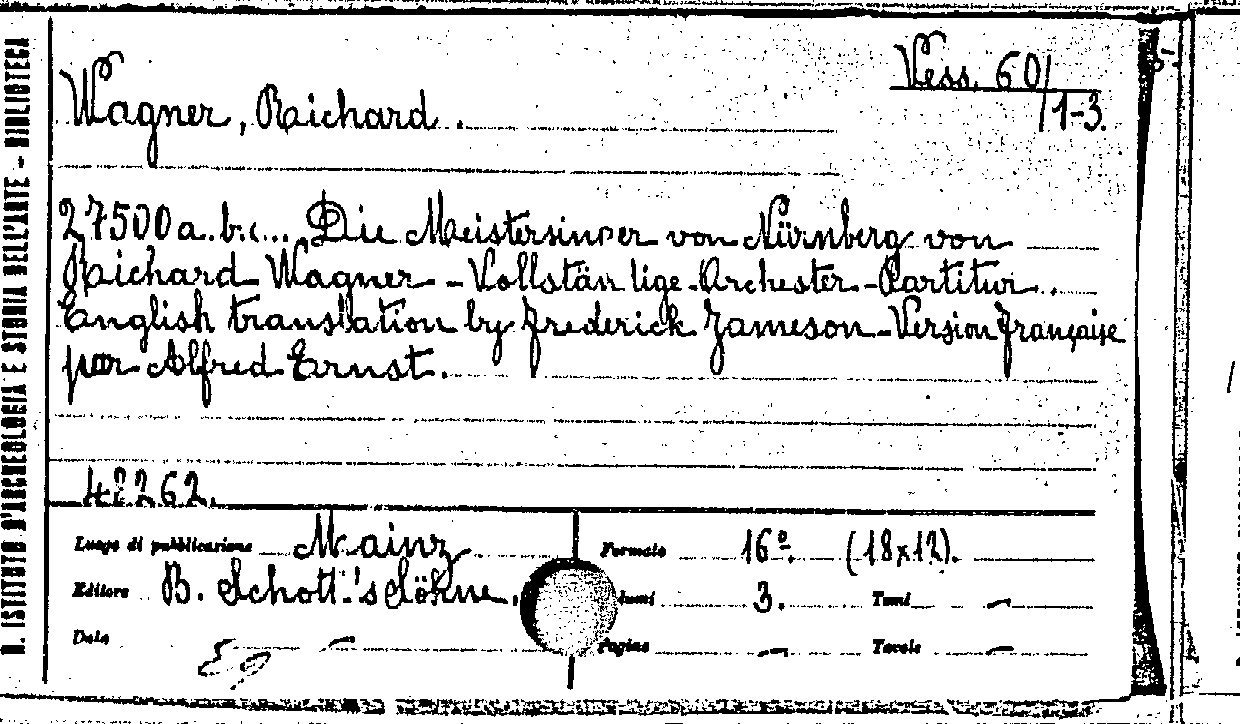 R. ISTITUTO D'ARCHEOLOGIA E STORIA DELL'ARTE - BIBLIOTECA
Vess. 60/
/1-3.
Wagner, Richard.
27500 a.b.c... Die Meistersinger von Nürnberg von
Richard Wagner - Vollständige Orchester-Partitur.
English translation by Frederick Jameson - Version française
par Alfred Ernst.
42262.
Luogo di pubblicazione Mainz Formato 16º. (18x12).
Editore B. Schott's Söhne. 3. Tomi -
Data - Pagine - Tavole -